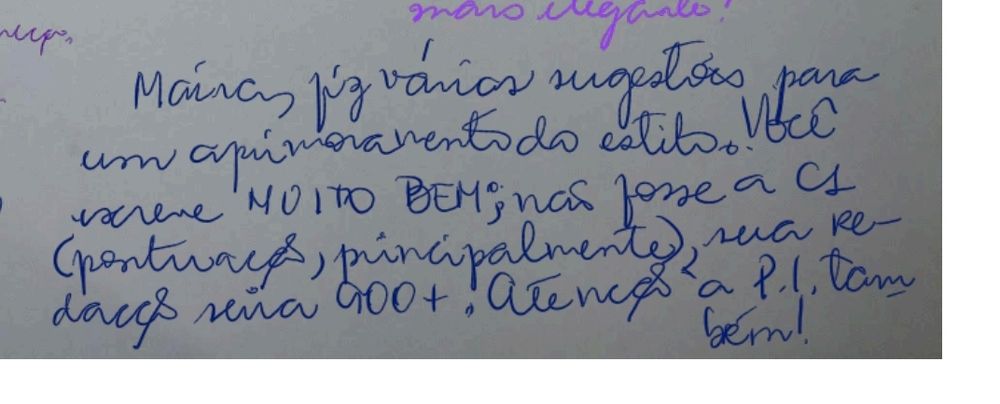 mais elegante!
Maíra, fiz várias sugestões para
um aprimoramento do estilo. Você
escreve MUITO BEM; não fosse a C1
(pontuação, principalmente), sua re-
dação seria 900+. Atenção à P.I. tam
bém!